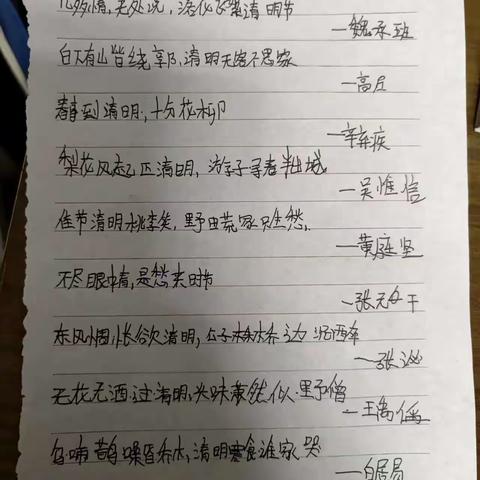 几多情，无处说，落花飞絮清明节
—魏承班
白下有山皆绕郭，清明无客不思家
—高启
春到清明，十分花柳
—辛弃疾
梨花风起正清明，游子寻春半出城
—吴惟信
佳节清明桃李笑，野田荒冢只生愁，
—黄庭坚
不尽眼中青，是愁来时节
—张元干
东风惆怅欲清明，公子桥边沉酒
—张泌
无花无酒过清明，兴味萧然似野僧
—王禹偁
乌啼鹊噪昏乔木，清明寒食谁家哭
—白居易